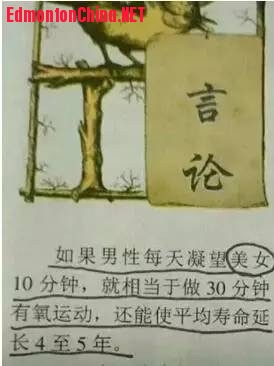 EdmontonChina.NET
言
论
如果男性每天凝望美女
10 分钟，就相当于做 30 分钟
有氧运动，还能使平均寿命延
长 4 至 5 年。